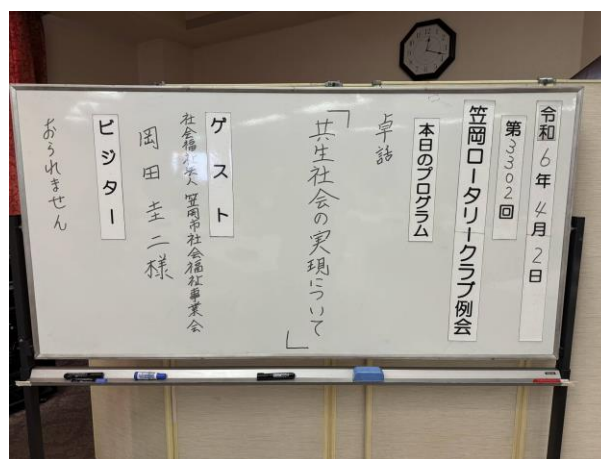 令和6年4月2日
第3302回
笠岡ロータリークラブ例会
本日のプログラム
卓話
「共生社会の実現について」
ゲスト
社会福祉法人 笠岡市社会福祉事業会
岡田圭二様
ビジター
おられません